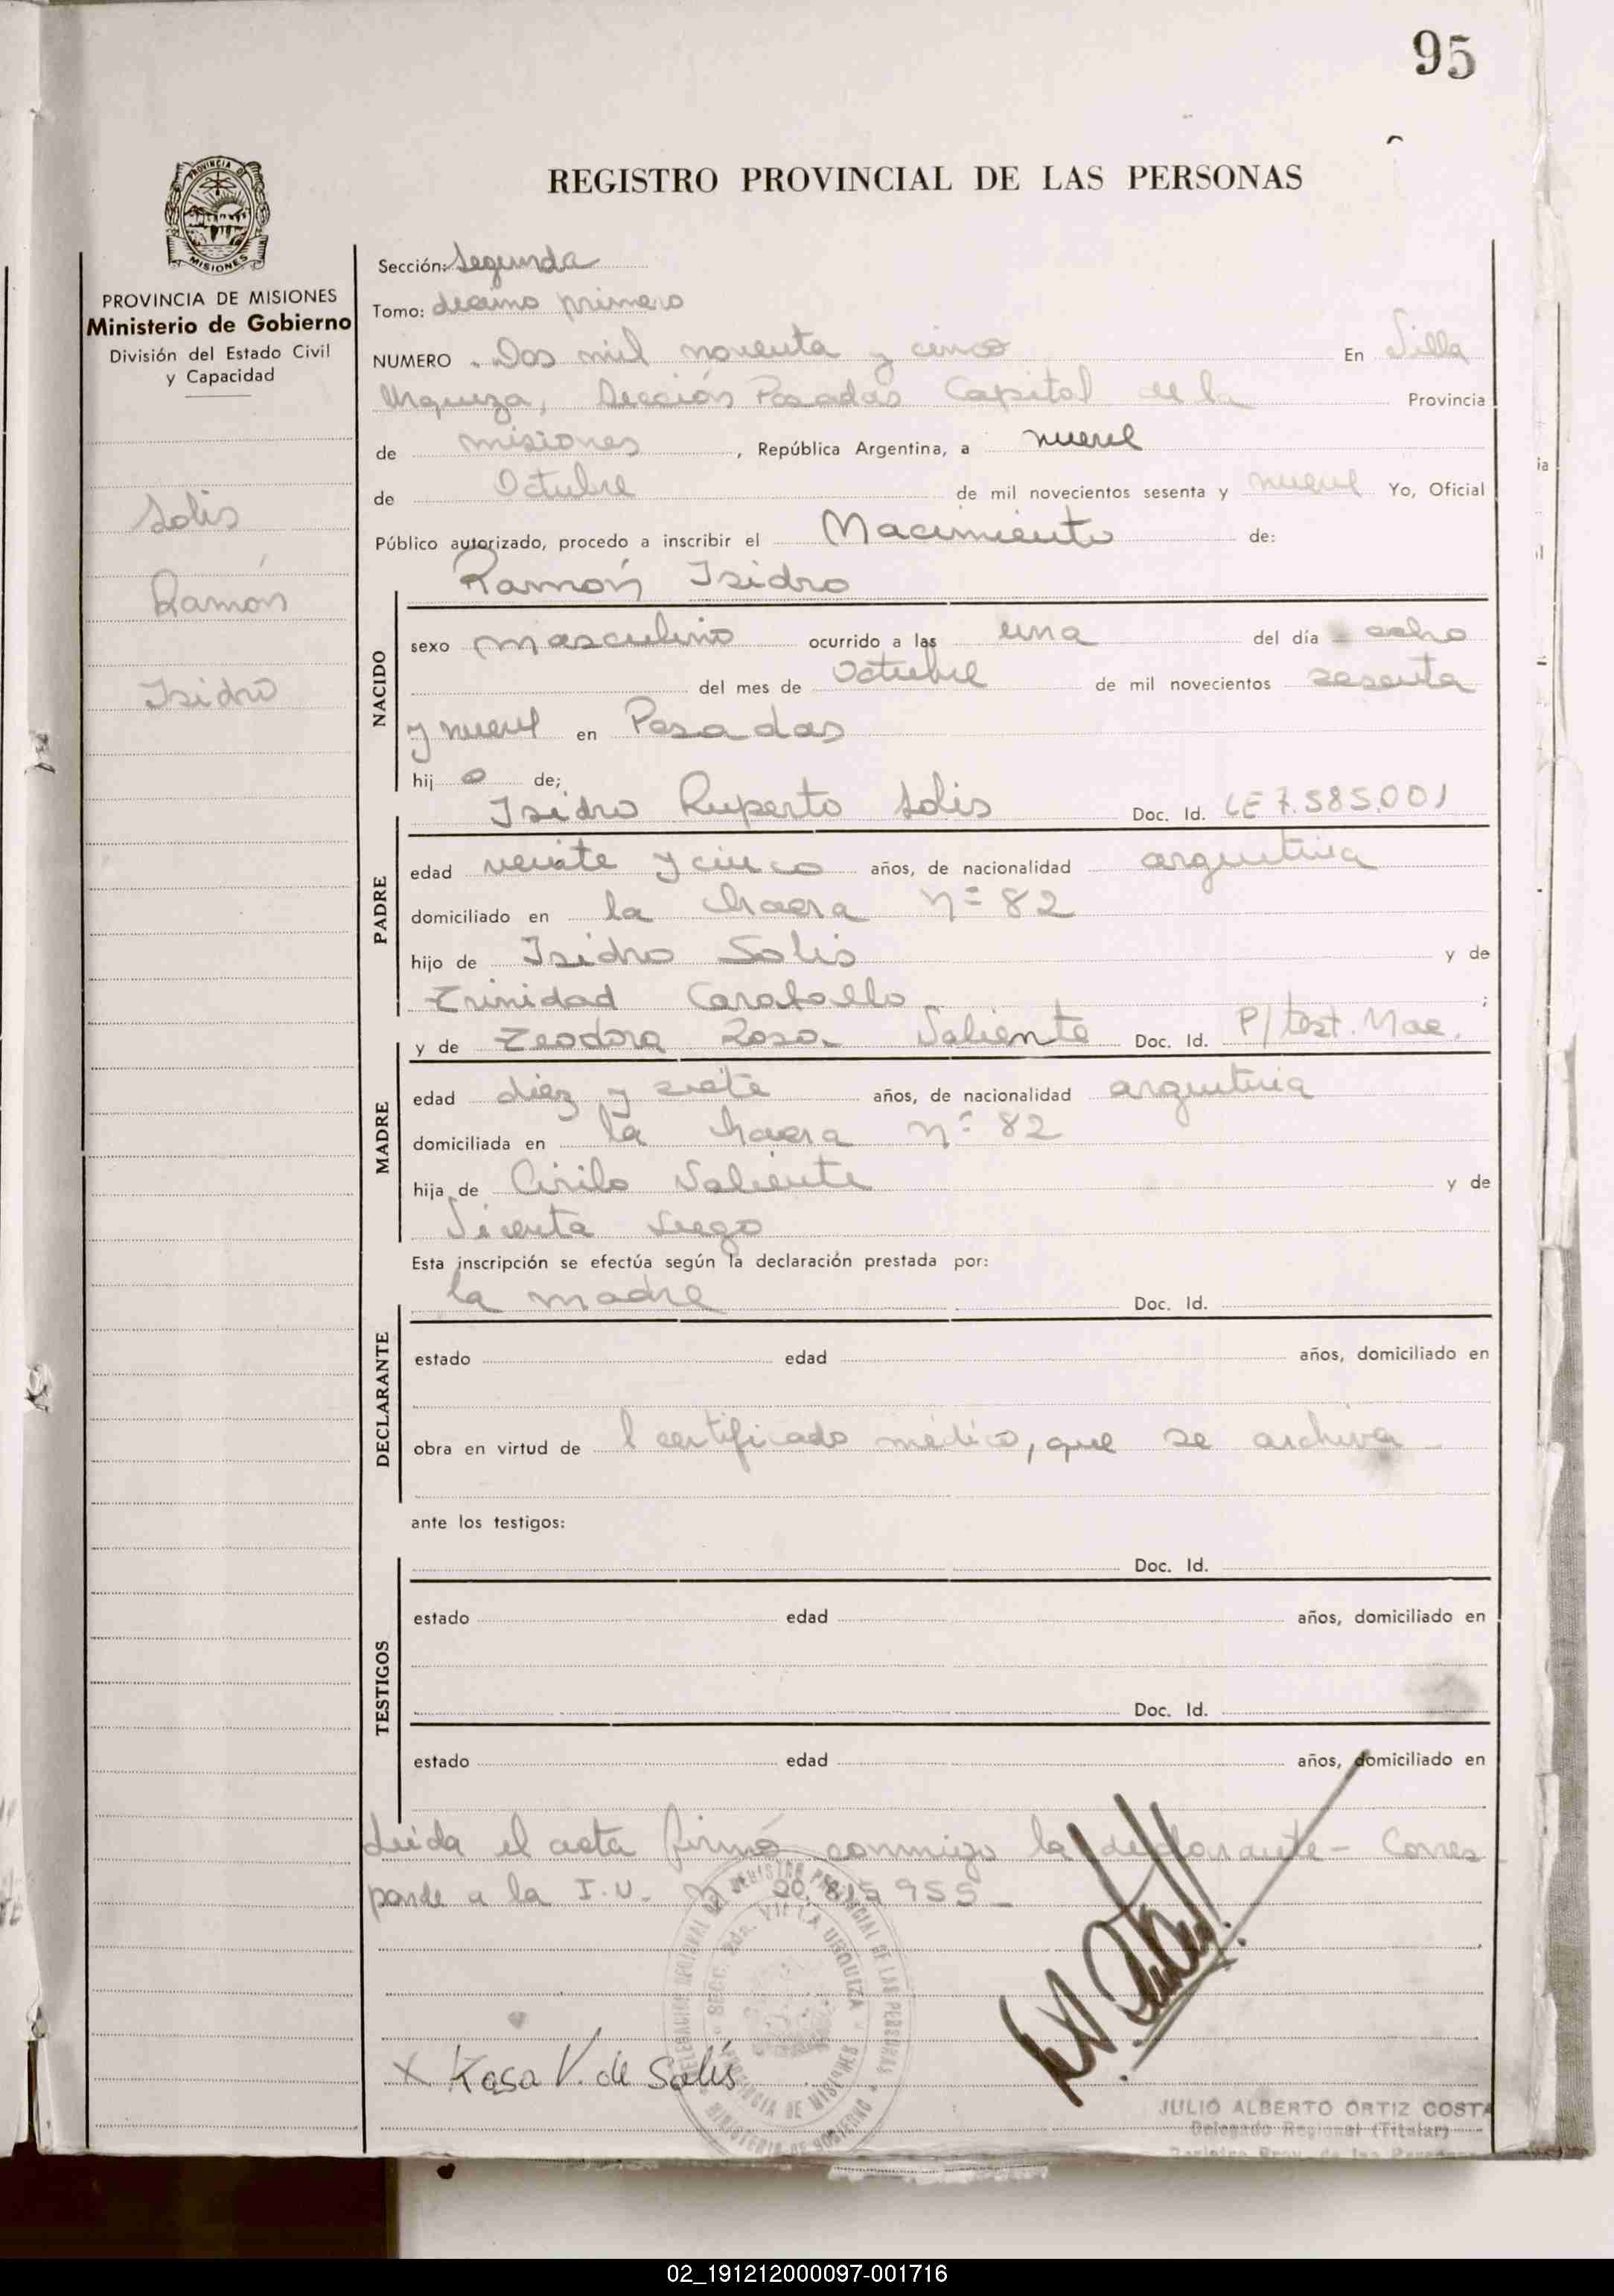 95
PROVINCIA DE MISIONES
REGISTRO PROVINCIAL DE LAS PERSONAS
PROVINCIA DE MISIONES
Ministerio de Gobierno
División del Estado Civil
y Capacidad
Solis
Ramón
Isidro
Sección: Segunda
Tomo: decimo primero
NUMERO Dos mil noventa y cinco En Villa
Urquiza, Sección Posadas Capital de la Provincia
de misiones, República Argentina, a nueve
de Octubre de mil novecientos sesenta y nueve Yo, Oficial
Público autorizado, procedo a inscribir el Nacimiento de:
Ramón Isidro
NACIDO
sexo masculino ocurrido a las una del día ocho
del mes de Octubre de mil novecientos sesenta
y nueve en Posadas
hij o de;
Isidro Ruperto Solis Doc. Id. LE 7.585.001
PADRE
edad veinte y cinco años, de nacionalidad argentina
domiciliado en la chacra nº 82
hijo de Isidro Solis y de
Trinidad ;
y de Teodora Rosa Valiente Doc. Id. P/ test. Nac.
MADRE
edad diez y siete años, de nacionalidad argentina
domiciliada en la chacra nº 82
hija de Cirilo Valiente y de
Vicenta Lugo
Esta inscripción se efectúa según la declaración prestada por:
la madre Doc. Id.
DECLARANTE
estado edad años, domiciliado en
obra en virtud de l certificado médico, que se archiva
ante los testigos:
Doc. Id.
TESTIGOS
estado edad años, domiciliado en
Doc. Id.
estado edad años, domiciliado en
Leida el acta firmó conmigo la declarante - Corres
ponde a la I.U. Nº 20.815955 -
X Rosa V. de Solís
JULIO ALBERTO ORTIZ COSTA
Delegado Regional (Titular)
02_191212000097-001716